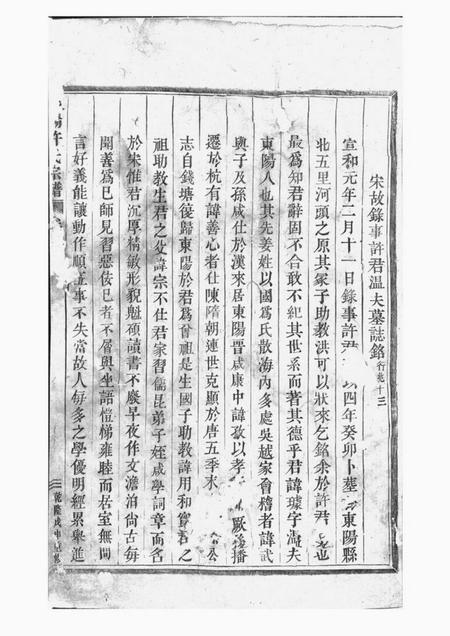 宋故錄事許君溫夫墓誌銘行兆十三
宣和元年二月十一日錄事許君 四年癸卯卜葬 東陽縣
北五里河頭之原其冢子助教洪可以狀來乞銘余於許君 也
最為知君辭固不合敢不紀其世系而著其德乎君諱璩字溫夫
東陽人也其先姜姓以國為氏散海內多處吳越家會稽者諱武
與子及孫咸仕於漢來居東陽晉咸康中諱孜以孝 厥後播
遷於杭有諱善心者仕陳隋朝連世克顯於唐五季末 公
志自錢塘復歸東陽於君為曾祖是生國子助教諱用和實君之
祖助教生君之父諱宗不仕君家習儒昆弟子姪咸學詞章而名
於宋惟君沉厚精敏形貌魁碩讀書不廢早夜作文澹泊尚古每
聞善為己師見習惡伎巳者不屑與坐語愷梯雍睦而居室無間
言好義能讓動作順 事不失當故人每多之學優明經累舉進
許氏宗譜
乾隆戊申